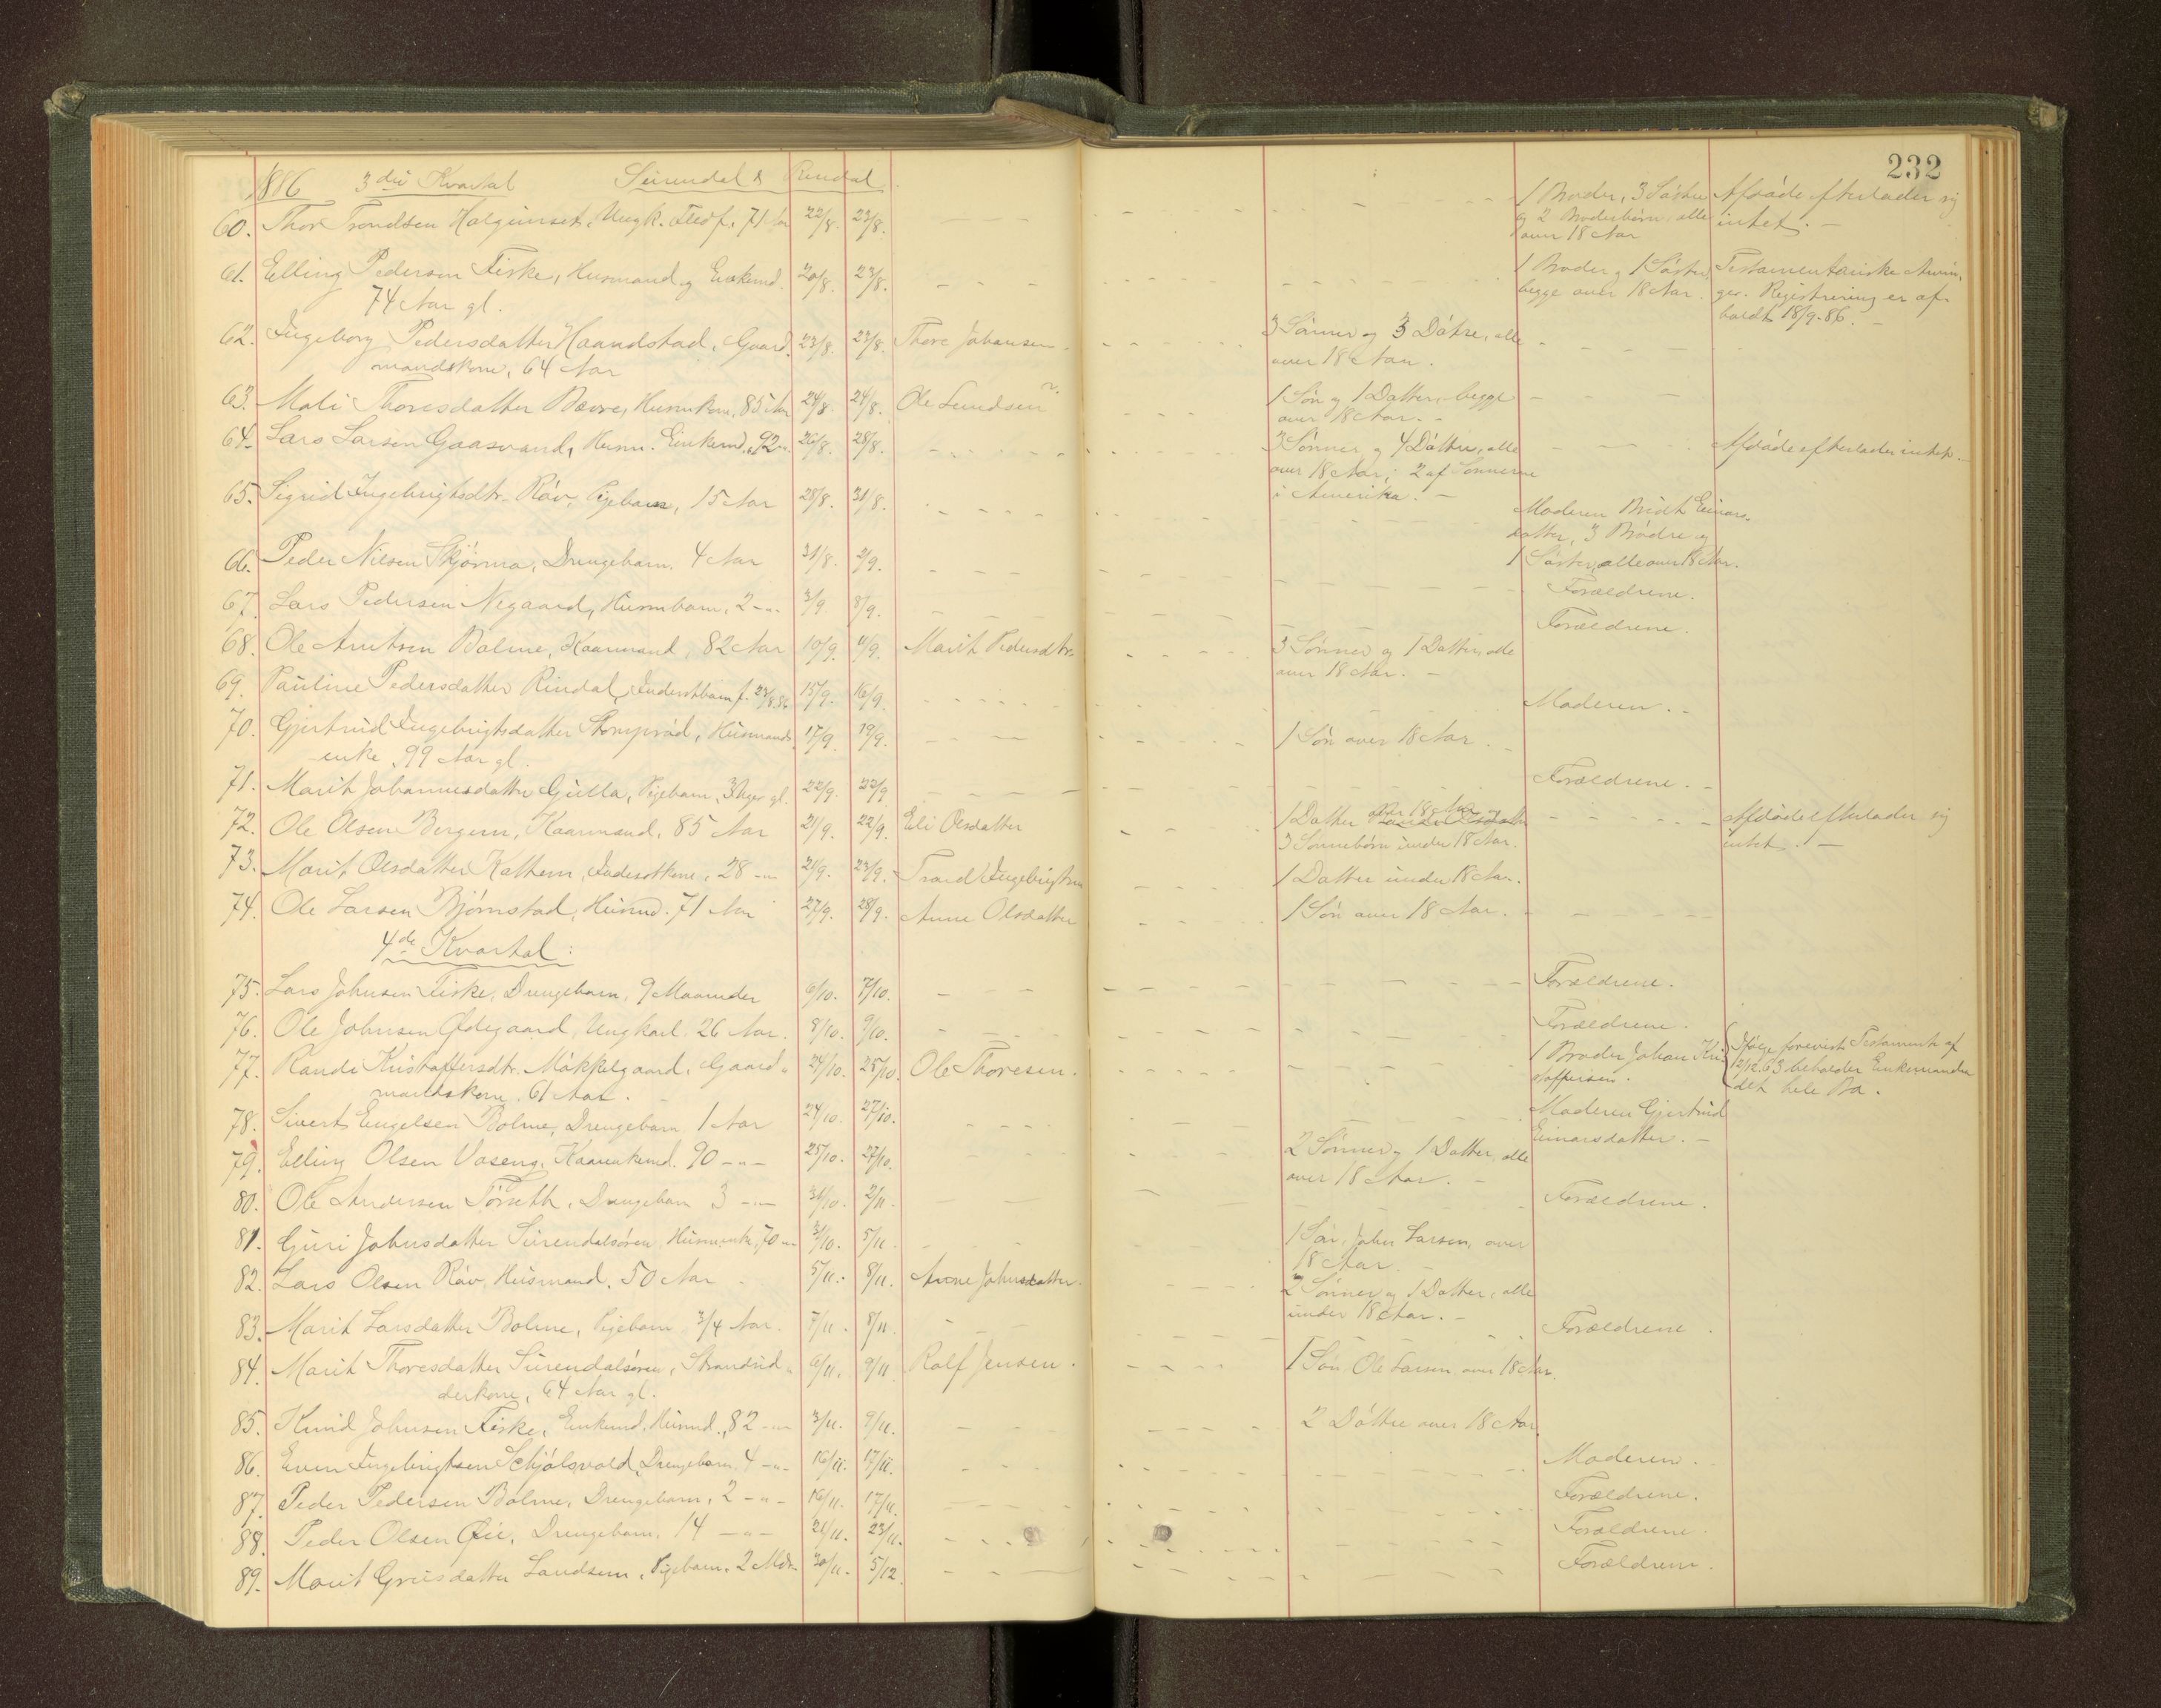 232
1886 3die Kvartal Surendal & Rindal
60. Thor Trondsen Halgunset, Ungk. Fledf. 71 Aar 22/8. 23/8. 1 Broder, 3 Søstre Afdøde efterlader sig
og 2 Broderbørn, alle intet. -
over 18 Aar
61. Elling Pedersen Fiske, Husmand og Enkemd. 20/8. 23/8. 1 Broder og 1 Søster, Testamentariske Arvin-
74 Aar gl. begge over 18 Aar. ger. Registrering er af-
holdt 18/9-86. -
62. Ingeborg Pedersdatter Haandstad, Gaard- 23/8. 23/8. Thore Johansen. 3 Sønner og 3 Døtre, alle
mandskone, 64 Aar over 18 Aar.
63. Mali Thoresdatter Bævre, Husmkone, 85 Aar 24/8. 24/8. Ole Lundsen 1 Søn og 1 Datter, begge
over 18 Aar. -
64. Lars Larsen Gaasvand, Husm. Enkemd. 92 -"- 26/8. 28/8. 3 Sønner og 4 Døttre, alle Afdøde efterlader intet. -
over 18 Aar; 2 af Sønnerne
i Amerika. -
65. Sigrid Ingebrigtsdtr. Røv, Pigebarn, 15 Aar 28/8. 31/8. Moderen Bridt Einars-
datter, 3 Brødre og
1 Søster, alle over 18 Aar.
66. Peder Nilsen Skjørma, Drengebarn, 4 Aar 31/8. 2/9. Forældrene.
67. Lars Pedersen Negaard, Husmbarn, 2 -"- 3/9. 8/9. Forældrene.
68. Ole Arntsen Bolme, Kaarmand, 82 Aar 10/9. 11/9. Marit Pedersdtr. 3 Sønner og 1 Datter, alle
over 18 Aar. -
69. Pauline Pedersdatter Rindal, Inderstbarn f. 23/8.86 15/9. 16/9. Moderen. -
70. Gjertrud Ingebrigtsdatter Husmands- 17/9. 19/9. 1 Søn over 18 Aar.
enke, 99 Aar gl.
71. Marit Johannesdatter Gulla, Pigebarn, 3 Uger gl. 22/9. 22/9. Forældrene. -
72. Ole Olsen Bergem, Kaarmand, 85 Aar 21/9. 22/9. Eli Olsdatter 1 Datter over 18 Aar og Afdøde efterlader sig
3 Sønnebørn under 18 Aar. intet. -
73. Marit Olsdatter Kathem, Inderstkone, 28 -"- 21/9. 23/9. Trond Ingebrigtsen 1 Datter under 18 Aar.
74. Ole Larsen Bjørnstad, Husmd. 71 Aar 27/9. 28/9. Anne Olsdatter 1 Søn over 18 Aar.
4de Kvartal:
75. Lars Johnsen Fiske, Drengebarn, 9 Maaneder 6/10. 7/10. Forældrene.
76. Ole Johnsen Ødegaard, Ungkarl. 26 Aar. 8/10. 9/10. Forældrene.
77. Randi Kristoffersdtr. Møkkelgaard, Gaard- 24/10. 25/10. Ole Thoresen. 1 Broder Johan Kri- Ifølge forevist Testament af
mandskone, 61 Aar. stoffersen. 12/12.63 beholder Enkemanden
det hele Bo.
78. Sivert Engelsen Bolme, Drengebarn, 1 Aar 24/10. 27/10. Moderen Gjertrud
Einarsdatter. -
79. Elling Olsen Vaseng, Kaarenkemd. 90 -"- 25/10. 27/10. 2 Sønner og 1 Datter, alle
over 18 Aar. -
80. Ole Andersen Tørseth, Drengebarn 3 -"- 31/10. 2/11. Forældrene.
81. Guri Johnsdatter Surendalsøren, Husmenke, 70 -"- 31/10. 5/11. 1 Søn, John Larsen, over
18 Aar. -
82. Lars Olsen Røv, Husmand. 50 Aar 5/11. 8/11. Anne Johnsdatter. 2 Sønner og 1 Datter, alle
under 18 Aar. -
83. Marit Larsdatter Bolme, Pigebarn 3/4 Aar. 7/11. 8/11. Forældrene.
84. Marit Thoresdatter Surendalsøren, Strandsid- 6/11. 9/11. Rolf Jensen. 1 Søn Ole Larsen, over 18 Aar.
derkone, 64 Aar gl.
85. Knud Johnsen Fiske, Enkemd. Husmd., 82 -"- 3/11. 9/11. 2 Døttre over 18 Aar.
86. Even Ingebrigtsen Schjølsvold, Drengebarn. 4 -"- 16/11. 17/11. Moderen.
87. Peder Pedersen Bolme, Drengebarn, 2 -"- 16/11. 17/11. Forældrene.
88. Peder Olsen Øie, Drengebarn, 14 -"- 21/11. 23/11. Forældrene.
89. Marit Landsem, Pigebarn, 2 Mdr. 30/11. 5/12. Forældrene.